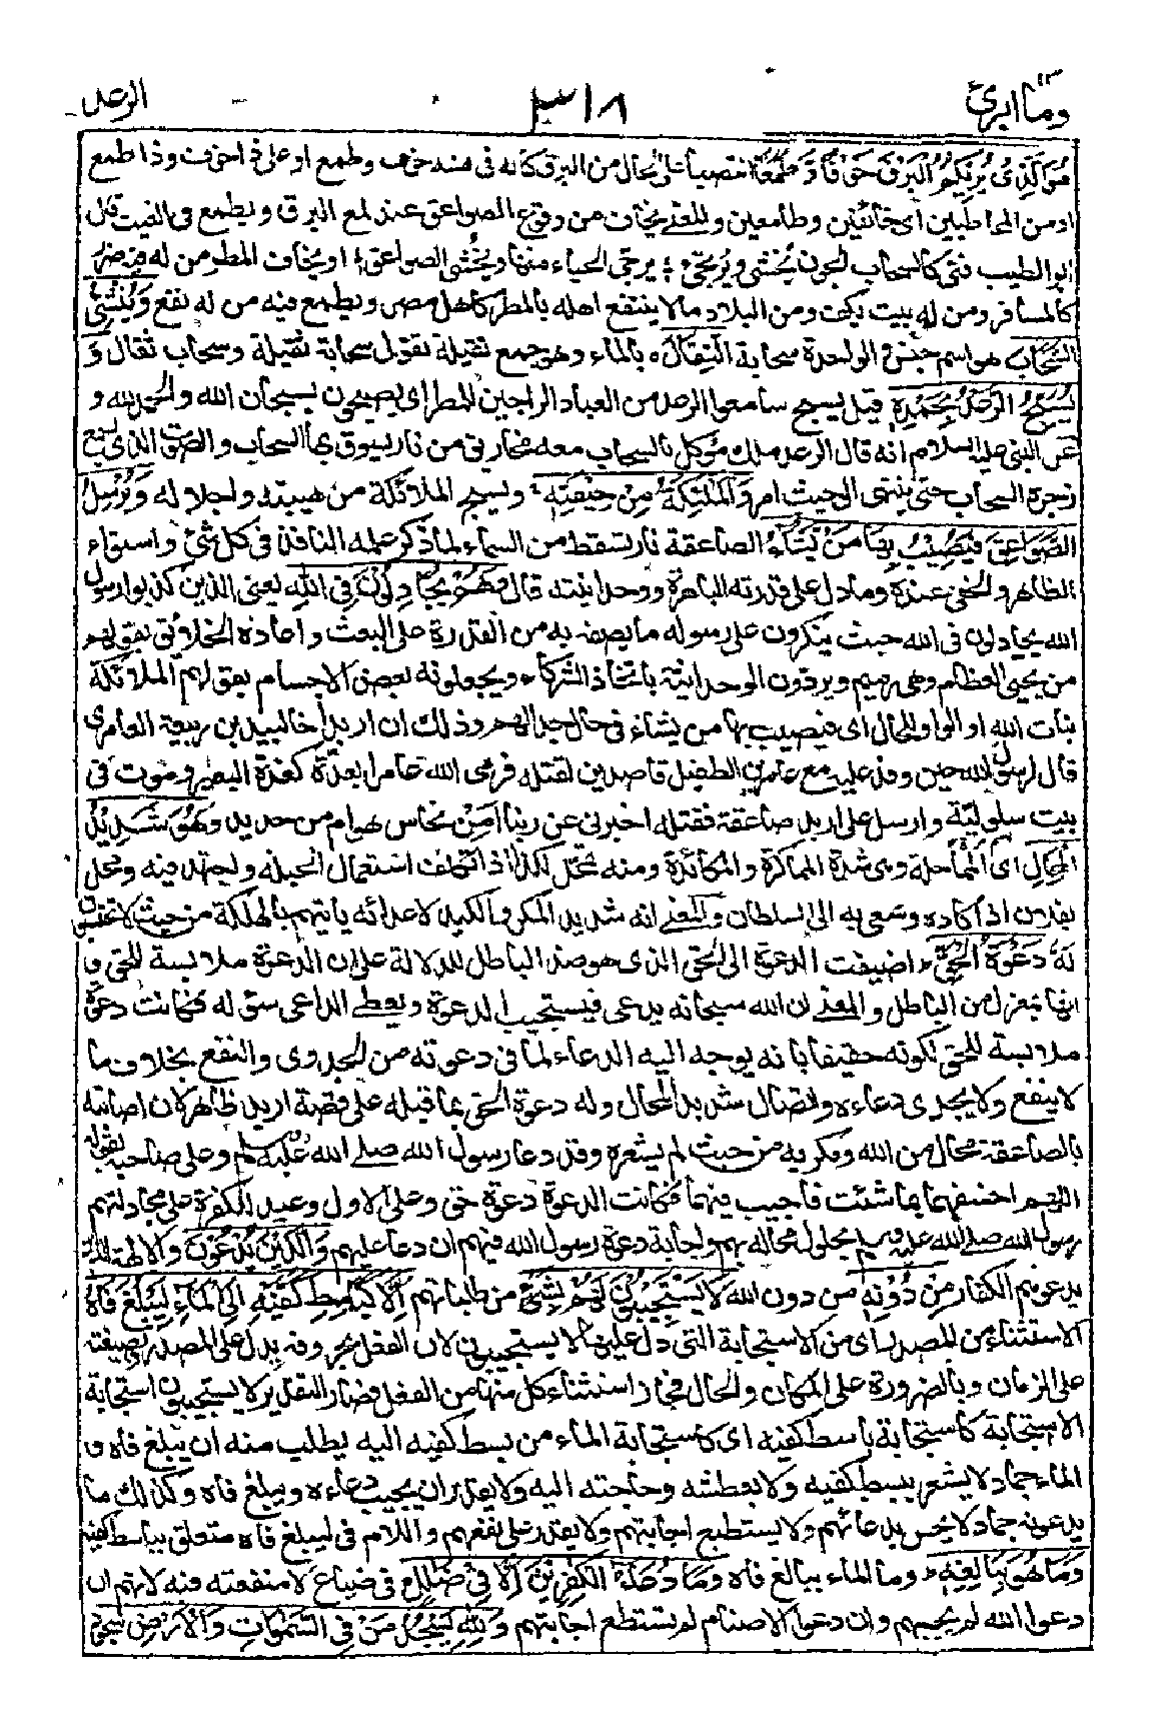 وما ابرئ ١٣
٣١٨
الرعد
هُوَ الَّذِىْ يُرِيْكُمُ الْبَرْقَ خَوْفًا وَّطَمَعًا انتصبا على الحال من البرق كانه فى نفسه خوف وطمع او على ذا خوف وذا طمع
او من المخاطبين اى خائفين وطامعين والمعنى يخاف من وقوع الصواعق عند لمع البرق ويطمع فى الغيث قال
ابو الطيب فتى كالسحاب الجون يُخشى ويُرتجى ؛ يرجى الحياء منها ويُخشى الصواعق ؛ او يخاف المطر من له فيه ضرر
كالمسافر ومن له بيت يكف ومن البلاد مالا ينتفع اهله بالمطر كاهل مصر ويطمع فيه من له نفع وَّيُنْشِئُ
السَّحَابَ هو اسم جنس الواحدة سحابة الثِّقَالَ ٥ بالماء وهو جمع ثقيلة تقول سحابة ثقيلة وسحاب ثقال وَ
يُسَبِّحُ الرَّعْدُ بِحَمْدِهٖ قيل يسبح سامعوا الرعد من العباد الراجين للمطر اى يصيحون بسبحان الله والحمد لله و
عن النبى عليه السلام انه قال الرعد ملك موكل بالسحاب معه مخاريق من نار يسوق بها السحاب والصوت الذى يسمع
زجره السحاب حتى ينتهى الى حيث امر وَالْمَلٰٓئِكَةُ مِنْ خِيْفَتِهٖ ويسبح الملائكة من هيبته واجلاله وَيُرْسِلُ
الصَّوَاعِقَ فَيُصِيْبُ بِهَا مَنْ يَّشَآءُ الصاعقة نار تسقط من السماء لما ذكر علمه النافذ فى كل شئ واستواء
الظاهر والخفى عنده وما دل على قدرته الباهرة ووحدانيته قال وَهُمْ يُجَادِلُوْنَ فِى اللهِ يعنى الذين كذبوا رسول
الله يجادلون فى الله حيث ينكرون على رسوله ما يصفه به من القدرة على البعث واعادة الخلائق بقولهم
من يحيى العظام وهى رميم ويردون الوحدانية باتخاذ الشركاء ويجعلونه بعض الاجسام بقولهم الملائكة
بنات الله او الواو للحال اى فيصيب بها من يشاء فى حال جدالهم وذلك ان اربد اخا لبيد بن ربيعة العامرى
قال لرسول الله حين وفد عليه مع عامر بن الطفيل قاصدين لقتله فرمى الله عامرا بغدّة كغدة البعير وموت فى
بيت سلولية وارسل على اربد صاعقة فقتله اخبرنى عن ربنا امن نحاس هو ام من حديد وَهُوَ شَدِيْدُ
الْمِحَالِ اى المماحلة وهى شدة المماكرة والمكائدة ومنه تمحّل لكذا اذا تكلف استعمال الحيلة واجتهد فيه ومحل
بفلان اذا كاده وسعى به الى السلطان والمعنى انه شديد المكر والكيد لاعدائه ياتيهم بالهلكة من حيث لا يحتسبون
لَهٗ دَعْوَةُ الْحَقِّ اضيفت الدعوة الى الحق الذى هو ضد الباطل للدلالة على ان الدعوة ملابسة للحق و
انها بمعزل من الباطل والمعنى ان الله سبحانه يدعى فيستجيب الدعوة ويعطى الداعى سؤله فكانت دعوة
ملابسة للحق لكونه حقيقا بانه يوجه اليه الدعاء لما فى دعوته من الجدوى والنفع بخلاف ما
لا ينفع ولا يجدى دعاءه واتصال شديد المحال وله دعوة الحق بما قبله على قصة اربد ظاهر لان اصابته
بالصاعقة محال من الله ومكر به من حيث لم يشعر وقد دعا رسول الله صلى الله عليه وسلم وعلى صاحبه بقوله
اللهم اخسفهما بما شئت فاجيب فيهما فكانت الدعوة دعوة حق وعلى الاول وعيد للكفرة على مجادلتهم
رسول الله صلى الله عليه وسلم بحلول محاله بهم واجابة دعوة رسول الله فيهم ان دعا عليهم وَالَّذِيْنَ يَدْعُوْنَ والالهة الذين
يدعوهم الكفار مِنْ دُوْنِهٖ من دون الله لَا يَسْتَجِيْبُوْنَ لَهُمْ بِشَئٍ من طلباتهم اِلَّا كَبَاسِطِ كَفَّيْهِ اِلَى الْمَآءِ لِيَبْلُغَ فَاهُ
الاستثناء من المصدر اى من الاستجابة التى دل عليها لا يستجيبون لان الفعل بحروفه يدل على المصدر وبصيغته
على الزمان وبالضرورة على المكان والحال فجاز استثناء كل منها من الفعل فصار التقدير لا يستجيبون استجابة
الا استجابة كاستجابة باسط كفيه اى كاستجابة الماء من بسط كفيه اليه يطلب منه ان يبلغ فاه و
الماء جماد لا يشعر ببسط كفيه ولا بعطشه وحاجته اليه ولا يقدر ان يجيب دعاءه ويبلغ فاه وكذلك ما
يدعونه جماد لا يحس بدعائهم ولا يستطيع اجابتهم ولا يقدر على نفعهم واللام فى ليبلغ فاه متعلق بباسط كفيه
وَمَا هُوَ بِبَالِغِهٖ وما الماء ببالغ فاه وَمَا دُعَآءُ الْكٰفِرِيْنَ اِلَّا فِىْ ضَلٰلٍ فى ضياع لا منفعته فيه لانهم ان
دعوا الله لم يجبهم وان دعوا الاصنام لم تستطع اجابتهم وَلِلّٰهِ يَسْجُدُ مَنْ فِى السَّمٰوَاتِ وَالْاَرْضِ سجود